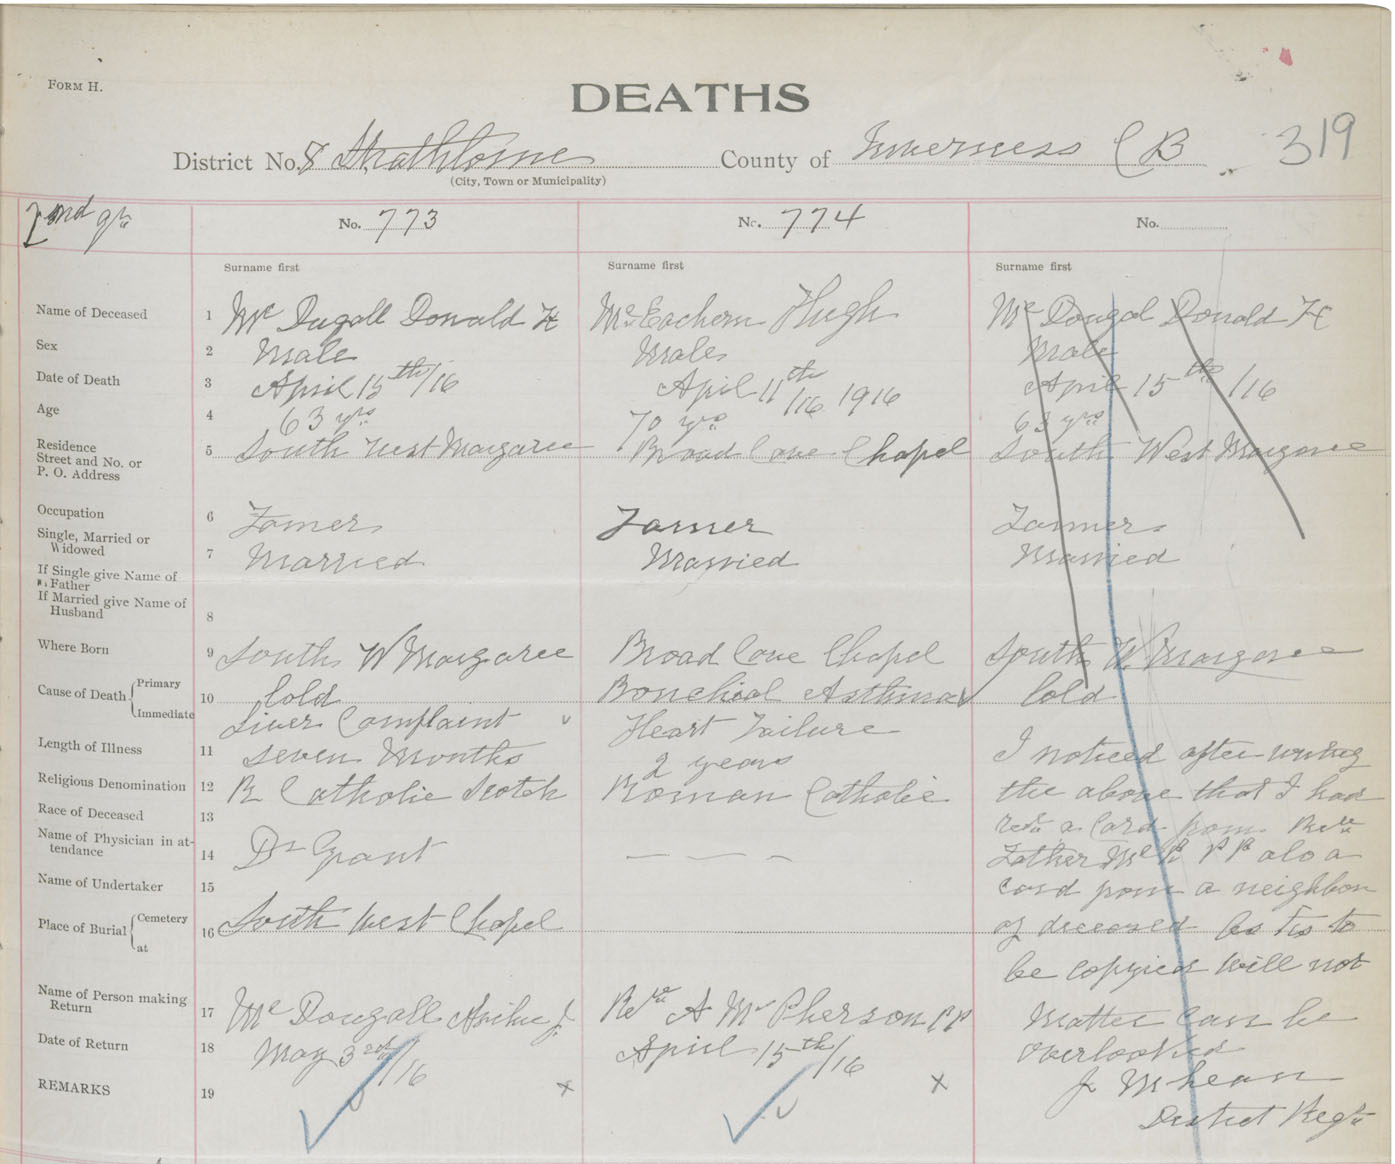 FORM H.
DEATHS
319
District No. 8 Strathlorne County of Inverness C B
(City, Town or Municipality)
2nd qr
No. 773
No. 774
No.
Surname first
Surname first
Surname first
Name of Deceased 1 Mc Dugall Donald H Mc Eachern Hugh Mc Dougal Donald H
Sex 2 Male Male Male
Date of Death 3 April 15th/16 April 11th/16 1916 April 15th/16
Age 4 63 yrs 70 yrs 63 yrs
Residence
Street and No. or
P. O. Address
5 South West Margaree Broad Cove Chapel South West Margaree
Occupation 6 Farmer Farmer Farmer
Single, Married or
Widowed
7 Married Married Married
If Single give Name of
Father
If Married give Name of
Husband
8
Where Born 9 South W Margaree Broad Cove Chapel South W. Margaree
Cause of Death Primary 10 Cold Bonchial Asthma Cold
Immediate Liver Complaint Heart Failure
Length of Illness 11 Seven Months 2 years
Religious Denomination 12 R Catholic Scotch Roman Catholic
Race of Deceased 13
Name of Physician in at-
tendance
14 Dr Grant
Name of Undertaker 15
Place of Burial Cemetery at 16 South West Chapel
Name of Person making
Return
17 Mc Dougall J. Rev A McPherson P P
Date of Return 18 May 3rd/16 April 15th/16
REMARKS 19 x x
I noticed after writing
the above that I had
a Card from Rev
Father Mc P P P also a
card from a neighbor
of deceased As tis to
be copied will not
Matter Can be
overlooked
J McLean
District Regr